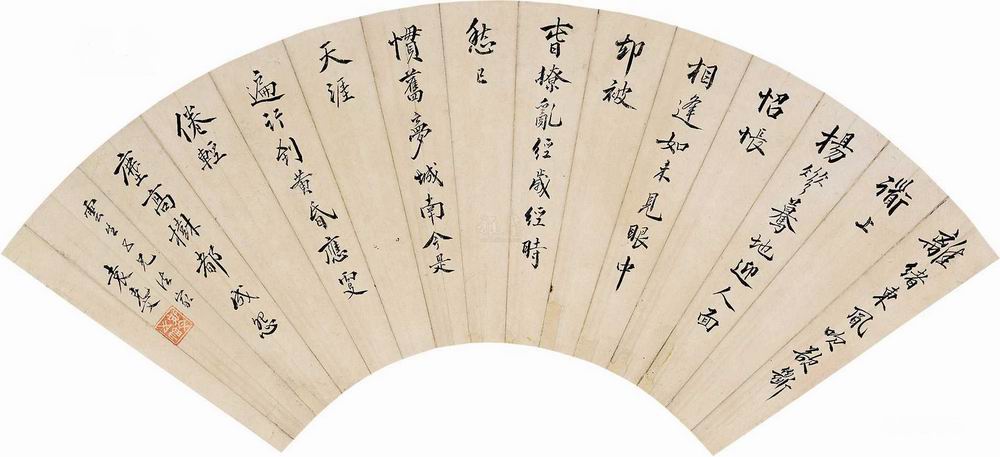 離緒東風吹欲斷
上
楊驀地迎人面
怊悵
相逢如未見眼中
却被
旾撩亂經歲經時
愁已
慣舊夢城南今是
天涯
遍行到黃昏應更
倦輕
塵高樹都成怨
雲生兄法家
袁克文